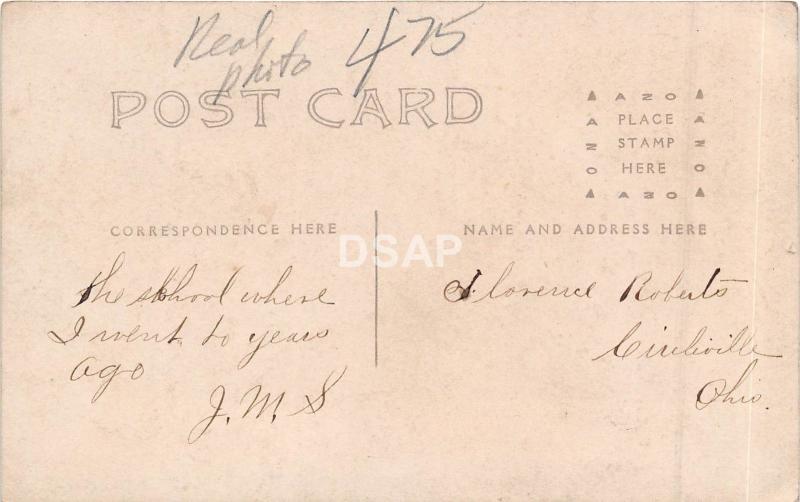 Real
photo 475
POST CARD
A Z O
PLACE
STAMP
HERE
A Z O
A Z O
A Z O
CORRESPONDENCE HERE
NAME AND ADDRESS HERE
DSAP
the school where
I went to years
ago
J. M. S
Florence Roberts
Circleville
Ohio.